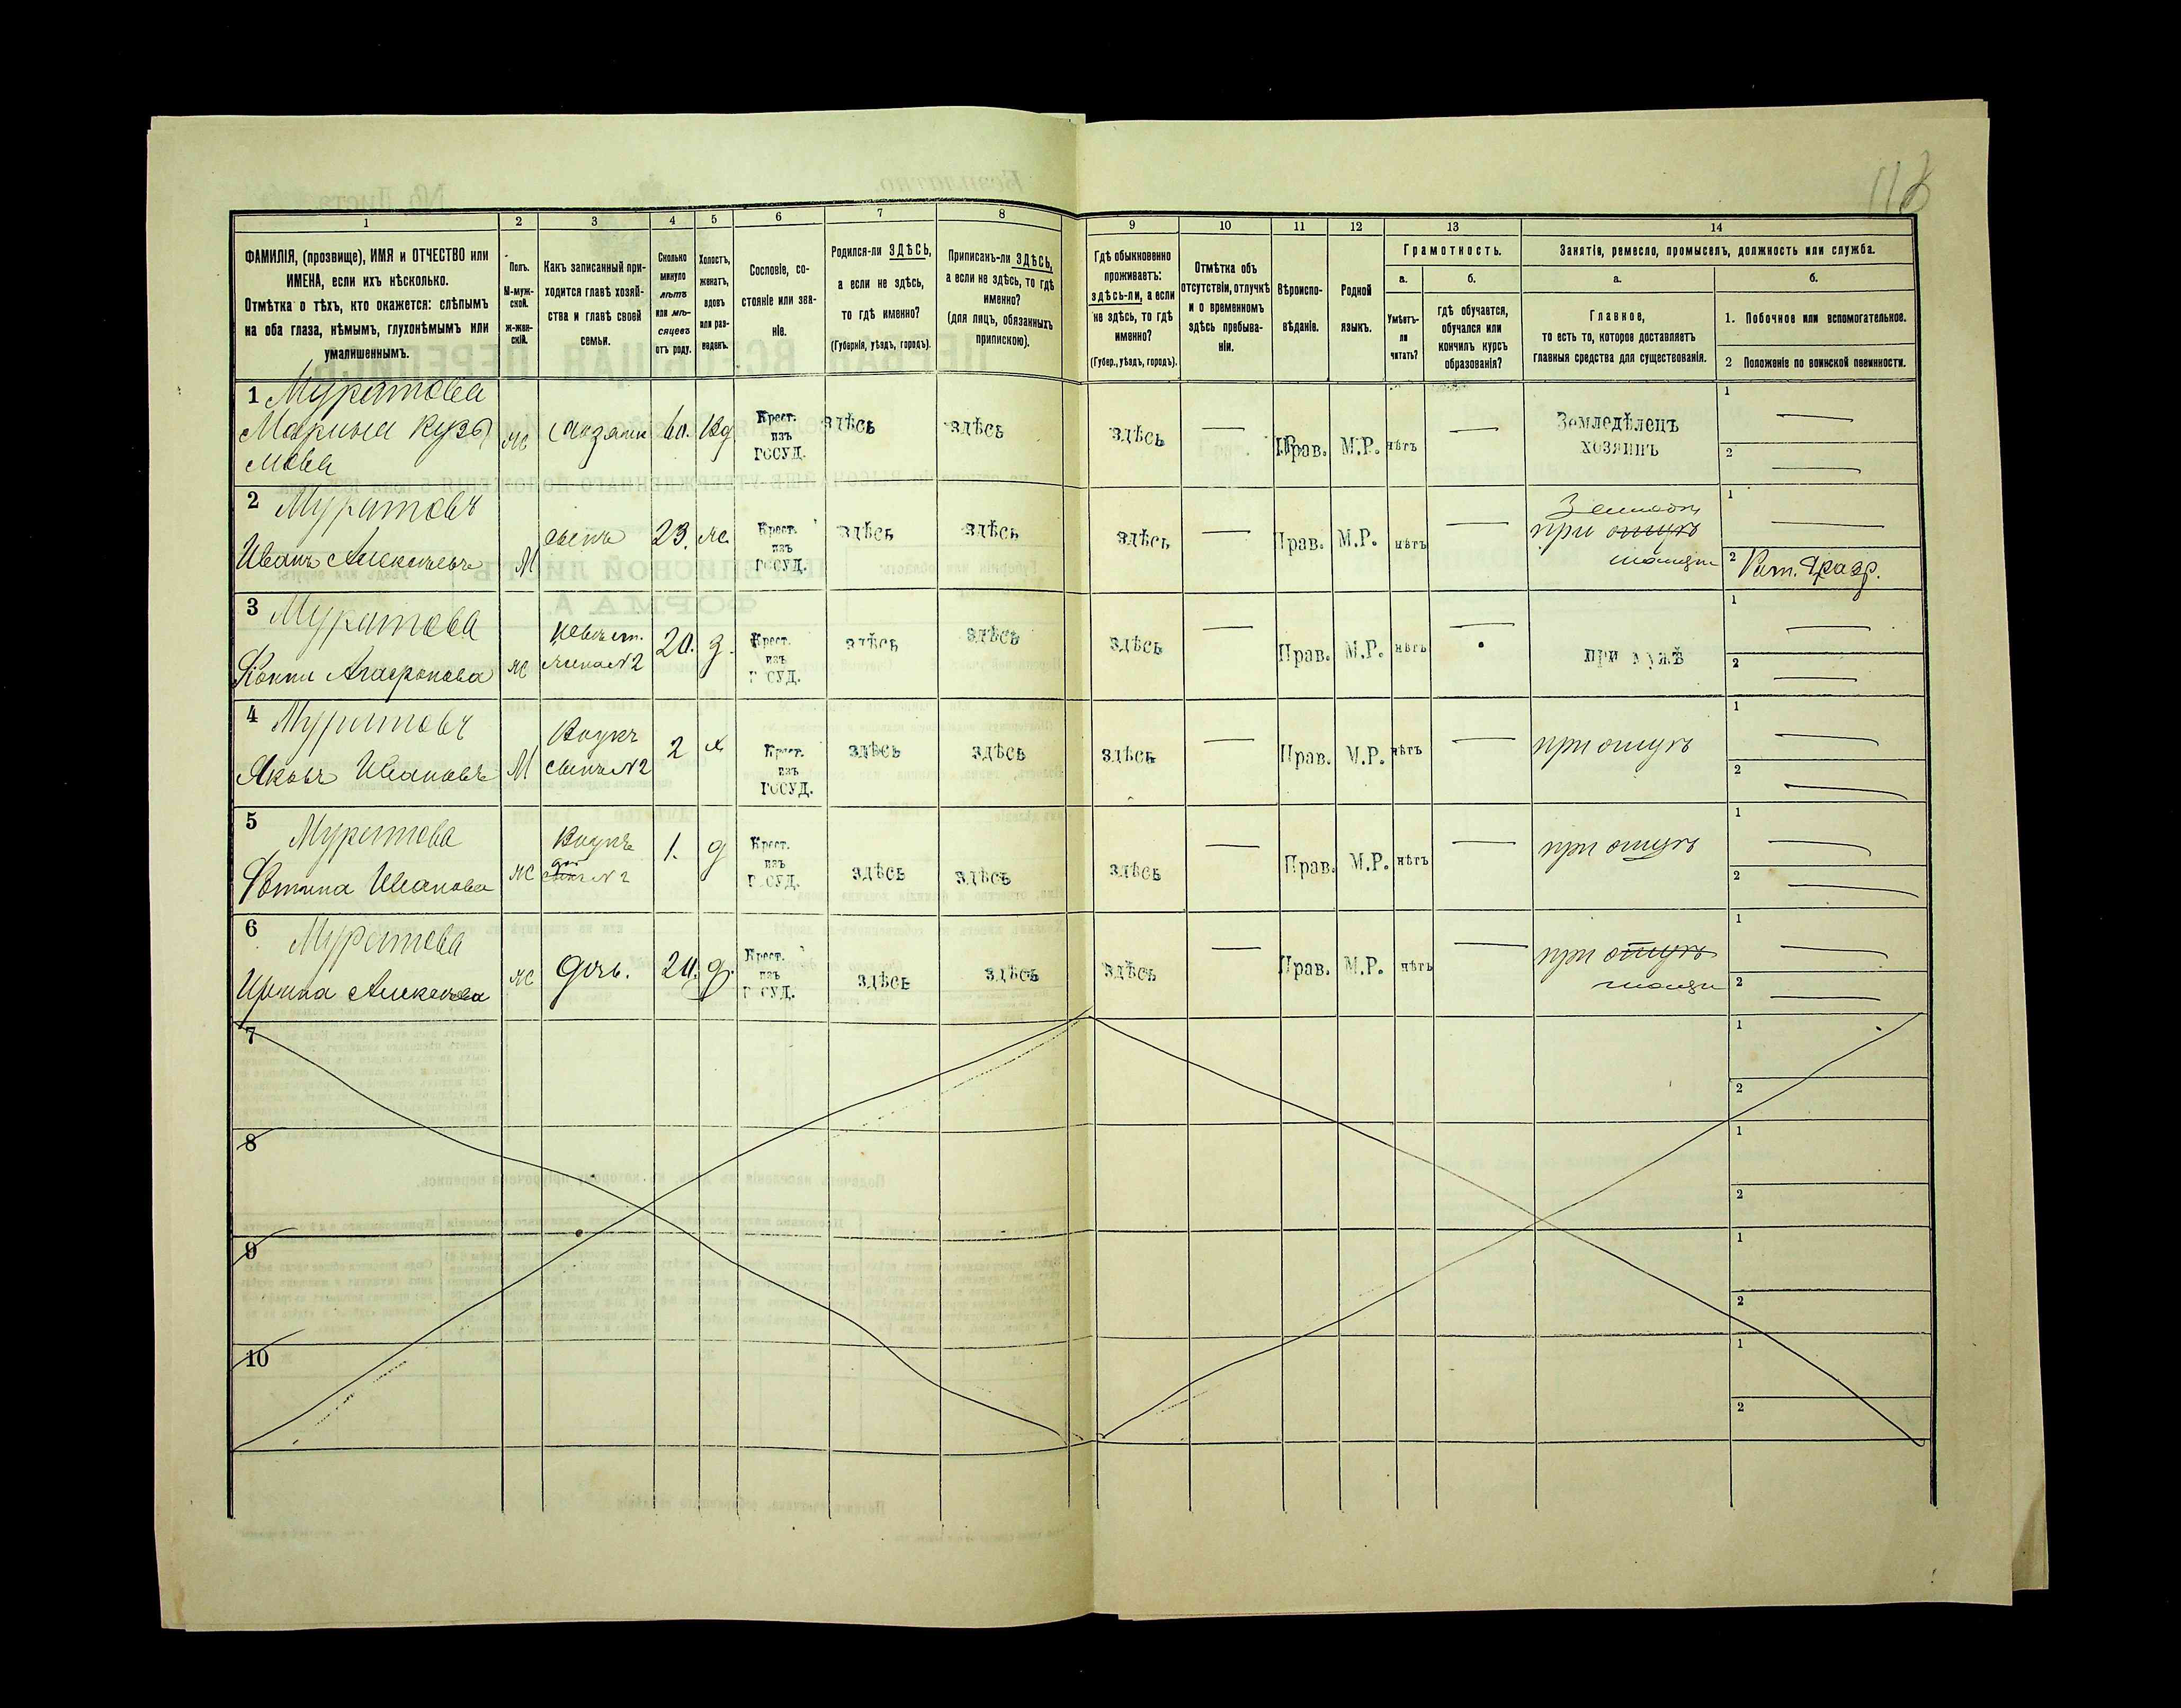 118
1
2
3
4
5
6
7
8
9
10
11
12
13
14
ФАМИЛІЯ, (прозвище), ИМЯ и ОТЧЕСТВО или
ИМЕНА, если ихъ нѣсколько.
Отмѣтка о тѣхъ, кто окажется: слѣпымъ
на оба глаза, нѣмымъ, глухонѣмымъ или
умалишеннымъ.
Полъ.
М-муж-
ской.
Ж-жен-
скій.
Какъ записанный при-
ходится главѣ хозяй-
ства и главѣ своей
семьи.
Сколько
минуло
лѣтъ
или мѣ-
сяцевъ
отъ роду.
Холостъ,
женатъ,
вдовъ
или раз-
веденъ.
Сословіе, со-
стояніе или зва-
ніе.
Родился-ли ЗДѢСЬ,
а если не здѣсь,
то гдѣ именно?
(Губернія, уѣздъ, городъ).
Приписанъ-ли ЗДѢСЬ,
а если не здѣсь, то гдѣ
именно?
(для лицъ, обязанныхъ
припискою).
Гдѣ обыкновенно
проживаетъ:
здѣсь-ли, а если
не здѣсь, то гдѣ
именно?
(Губер., уѣздъ, городъ).
Отмѣтка объ
отсутствіи, отлучкѣ
и о временномъ
здѣсь пребыва-
ніи.
Вѣроиспо-
вѣданіе.
Родной
языкъ.
Грамотность.
а.
Умѣетъ-
ли
читать?
б.
гдѣ обучается,
обучался или
кончилъ курсъ
образованія?
Занятіе, ремесло, промыселъ, должность или служба.
а.
Главное,
то есть то, которое доставляетъ
главныя средства для существованія.
б.
1. Побочное или вспомогательное.
2 Положеніе по воинской повинности.
1 Муратова
Марина Кузь
мова
ж
Хозяинъ
60.
Вд
Крест.
изъ
ГОСУД.
здѣсь
здѣсь
здѣсь
—
Прав.
М.Р.
нѣтъ
—
Земледѣлецъ
хозяинъ
1
—
2
—
2 Муратовъ
Иванъ Алексѣевъ
М
сынъ
23.
ж.
Крест.
изъ
ГОСУД.
здѣсь
здѣсь
здѣсь
Прав.
М.Р.
нѣтъ
—
при отцѣ
1
—
2 Рат. 2 разр.
3 Муратова
Агафонова
ж
сына N 2
20.
з.
Крест.
изъ
ГОСУД.
здѣсь
здѣсь
здѣсь
—
Прав.
М.Р.
нѣтъ
—
при мужѣ
1
—
2
—
4 Муратовъ
Яковъ Ивановъ
М
Внукъ
сынъ N 2
2
х
Крест.
изъ
ГОСУД.
здѣсь
здѣсь
здѣсь
—
Прав.
М.Р.
нѣтъ
—
при отцѣ
1
—
2
—
5 Муратова
Фотина Иванова
ж
Внукъ
N 2
1.
д
Крест.
изъ
ГОСУД.
здѣсь
здѣсь
здѣсь
—
Прав.
М.Р.
нѣтъ
—
при отцѣ
1
—
2
—
6 Муратова
Ирина Алексѣева
ж
дочь.
20.
д.
Крест.
изъ
ГОСУД.
здѣсь
здѣсь
здѣсь
—
Прав.
М.Р.
нѣтъ
—
при отцѣ
1
—
2
—
7
1
2
8
1
2
9
1
2
10
1
2